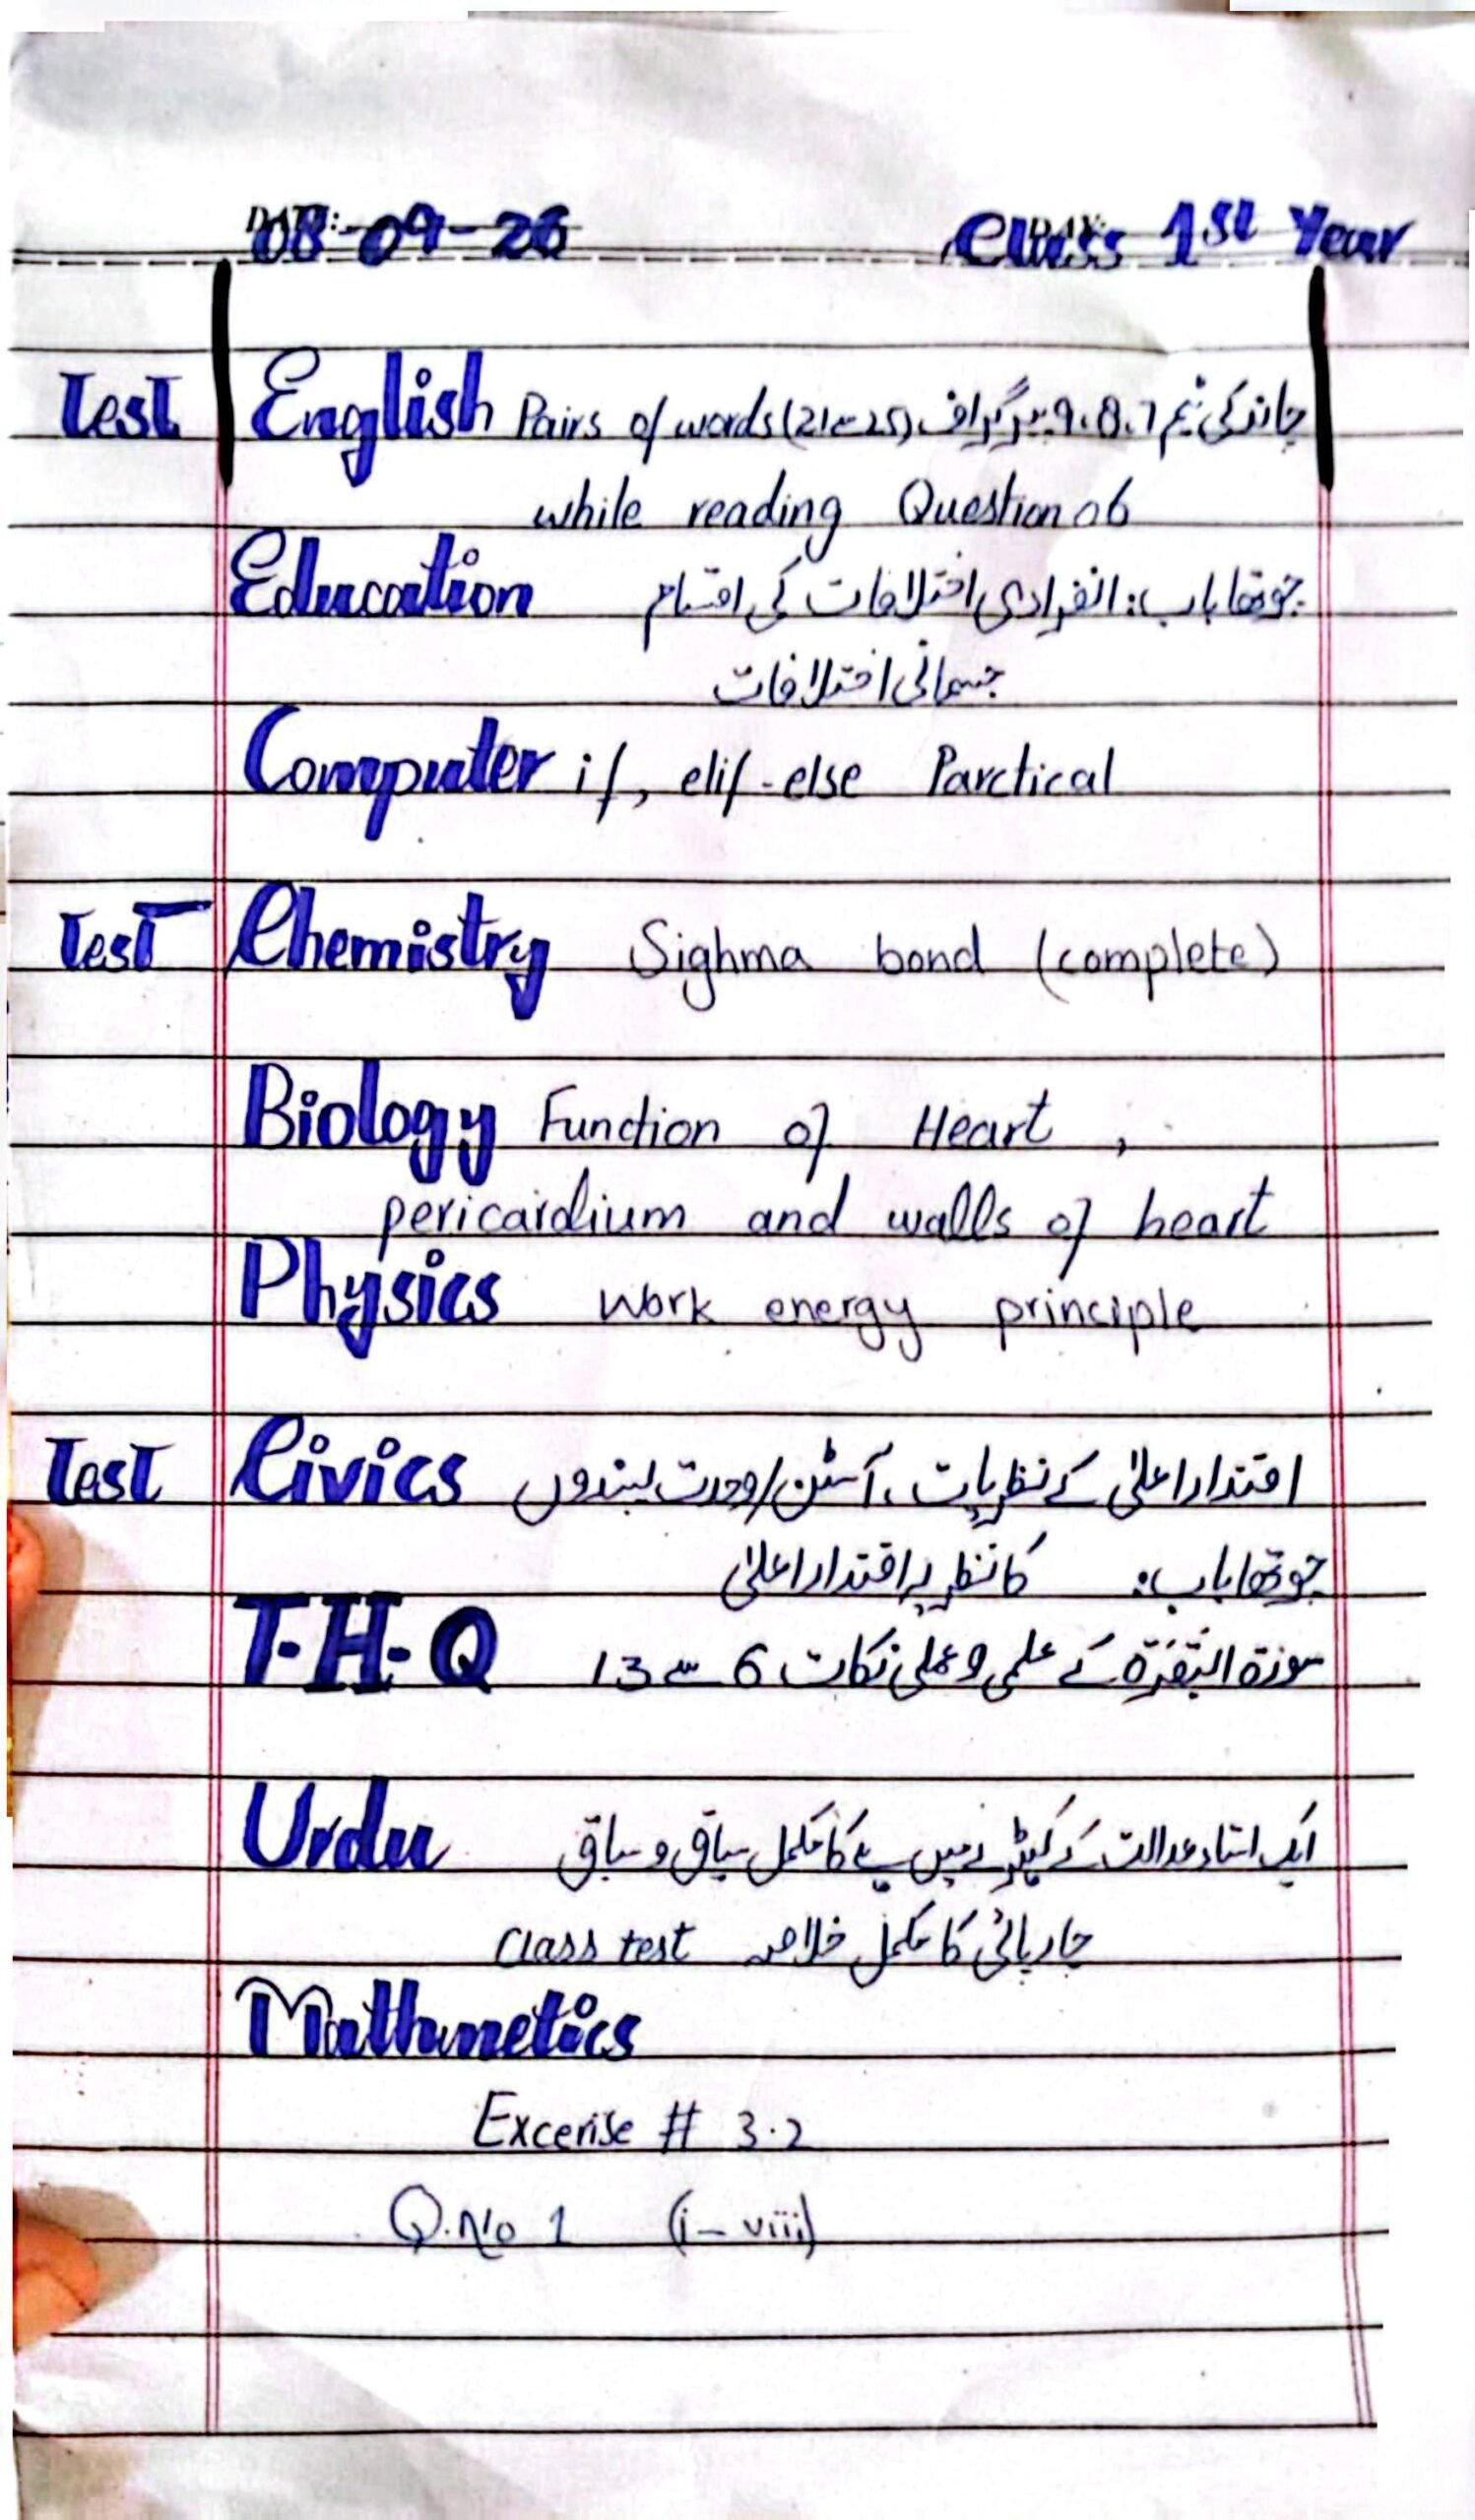 DATE: 08-09-26 DAY: Class 1st Year
Test English Pairs of words (21 سے 25) چاند کی نظم 7، 8، 9 پیراگراف
while reading Question 06
Education چوتھا باب: انفرادی اختلافات کی اقسام
جسمانی اختلافات
Computer if, elif-else Parctical
Test Chemistry Sighma bond (complete)
Biology Function of Heart ,
pericardium and walls of heart
Physics Work energy principle
Test Civics اقتدار اعلیٰ کے نظریات، آسٹن/وحدت پسندوں
چوتھا باب: کا نظریہ اقتدار اعلیٰ
T.H.Q سورۃ البَقَرَۃ کے علمی و عملی نکات 6 سے 13
Urdu ایک استاد عدالت کے کٹہرے میں کا مکمل سیاق و سباق
چارپائی کا مکمل خلاصہ class test
Mathmetics
Excerise # 3.2
Q.No 1 (i - viii)